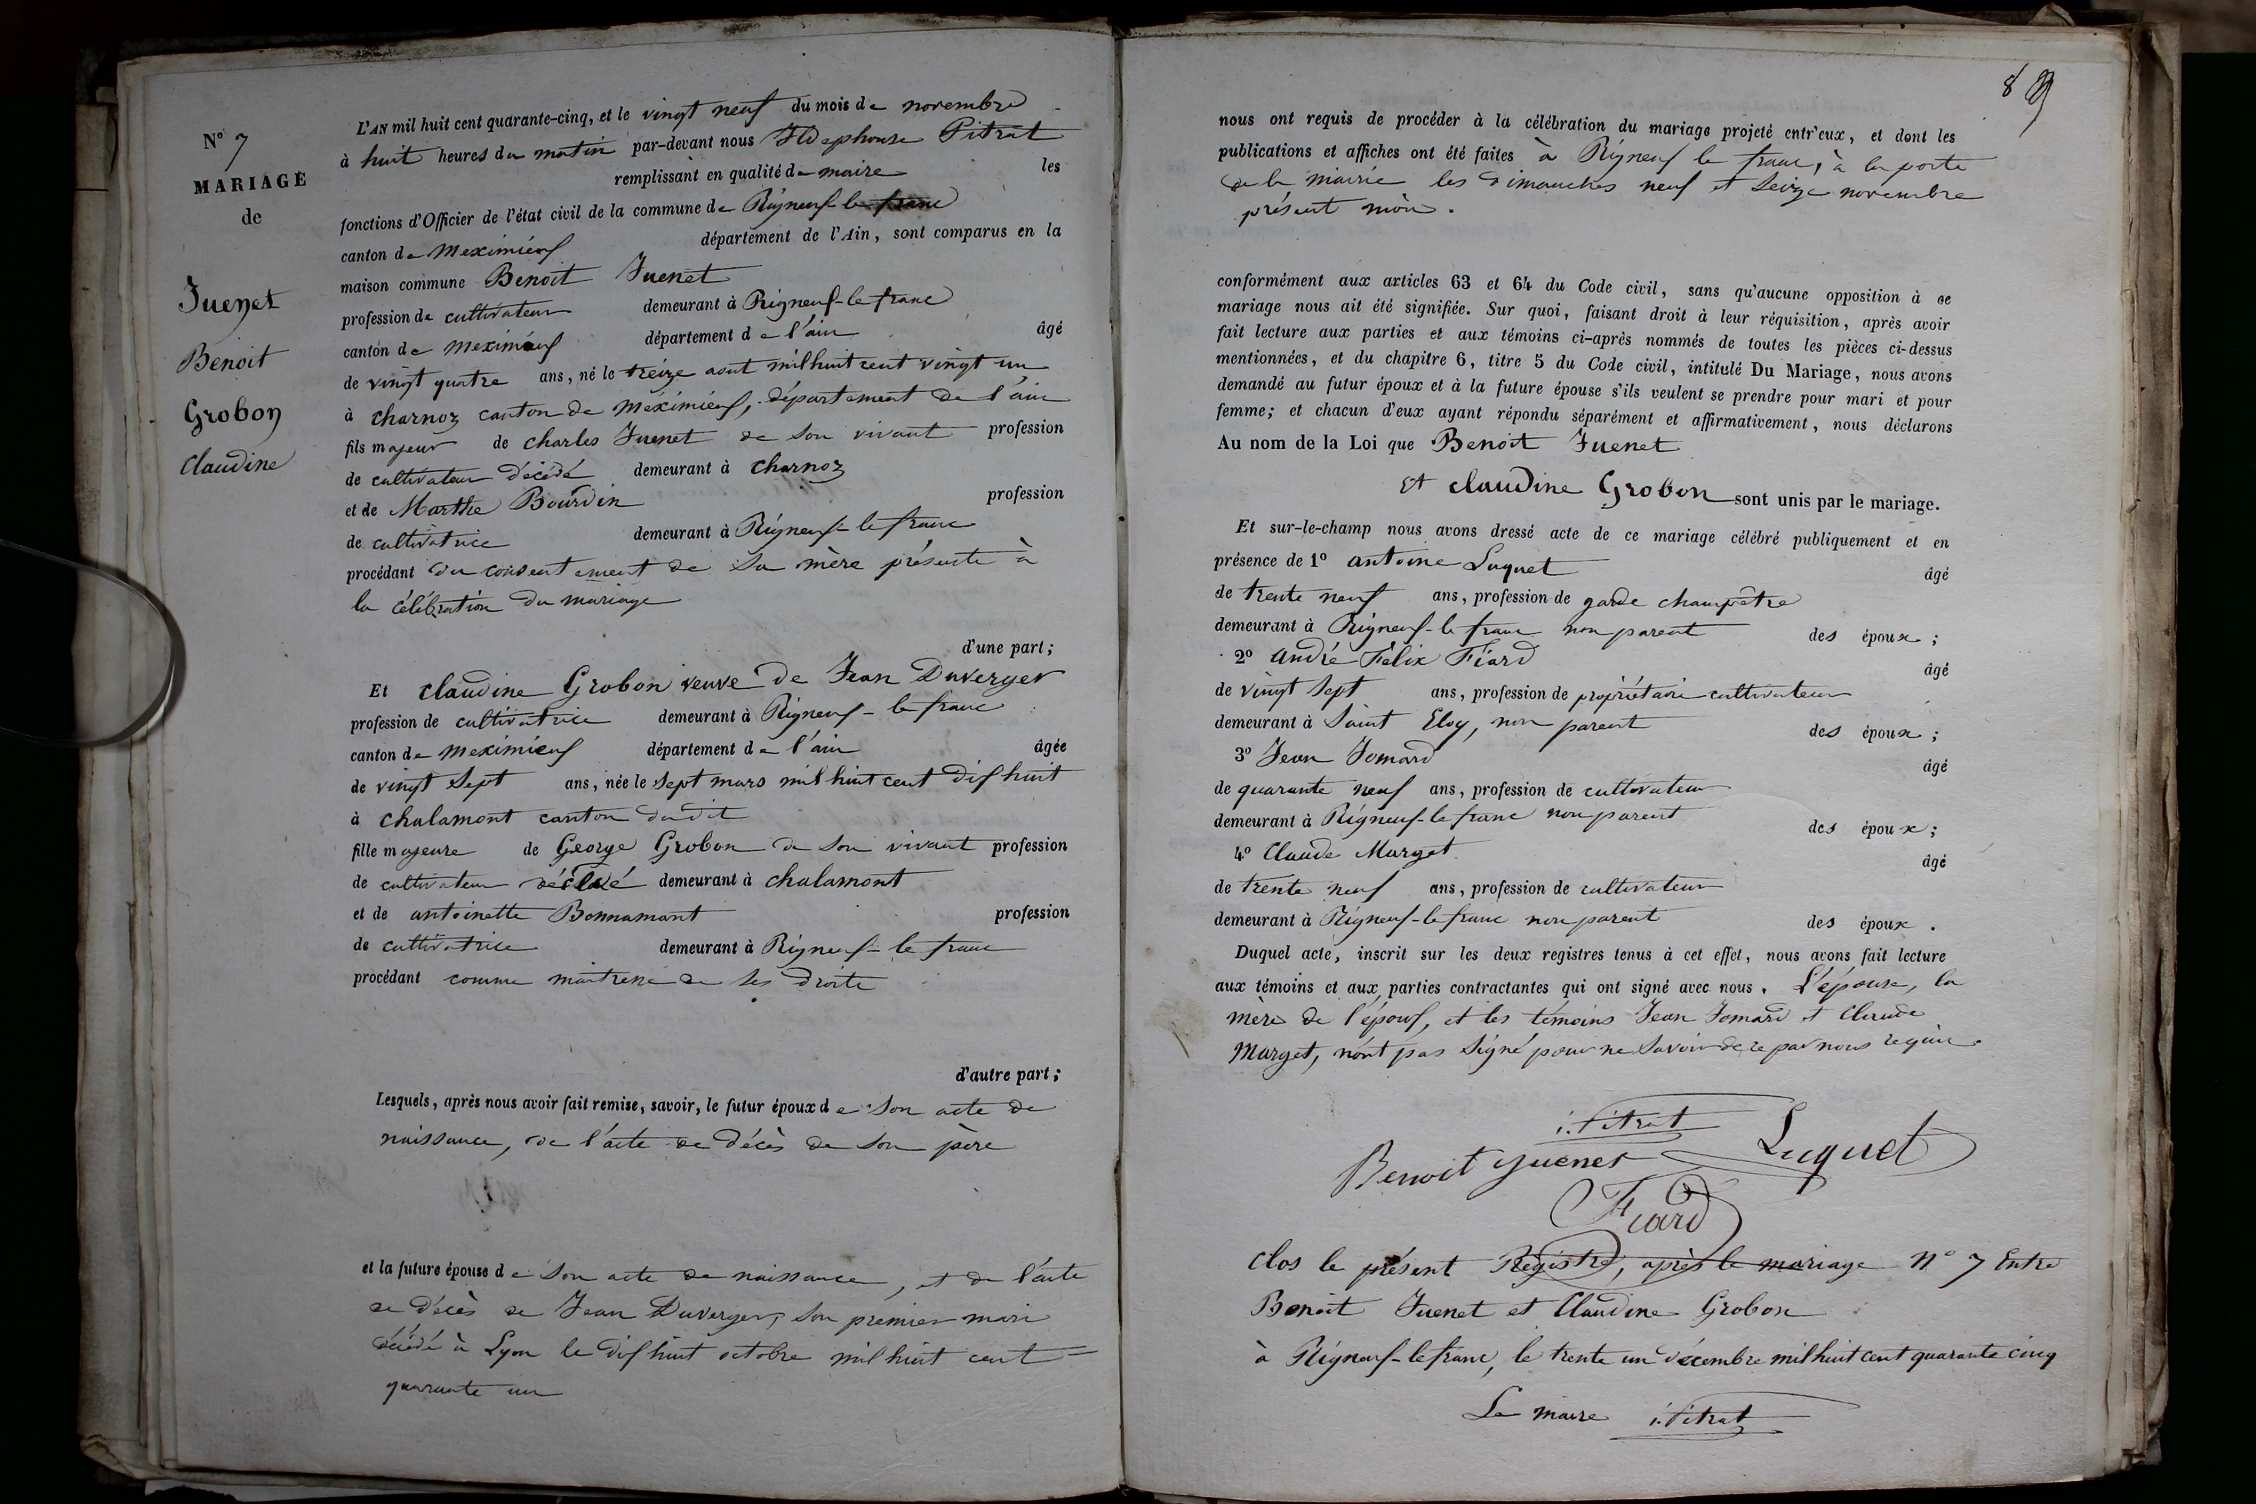 N° 7
MARIAGE
de
Juenet
Benoit
Grobon
Claudine
L'AN mil huit cent quarante-cinq, et le vingt neuf du mois de novembre
à huit heures du matin par-devant nous Ildephonse Pitrat
remplissant en qualité de maire les
fonctions d'Officier de l'état civil de la commune de Rigneux-le-franc
canton de Meximieux département de l'Ain, sont comparus en la
maison commune Benoit Juenet
profession de cultivateur demeurant à Rigneux-le-franc
canton de Meximieux département de l'ain âgé
de vingt quatre ans, né le treize aout mil huit cent vingt un
à charnoz canton de Méximieux, département de l'ain
fils majeur de charles Juenet de son vivant profession
de cultivateur décédé demeurant à charnoz
et de Marthe Bourdin profession
de cultivatrice demeurant à Rigneux-le franc
procédant du consentement de sa mère présente à
la célébration du mariage
d'une part;
Et claudine Grobon veuve de Jean Duverger
profession de cultivatrice demeurant à Rigneux-le franc
canton de Meximieux département de l'ain âgée
de vingt sept ans, née le sept mars mil huit cent dix huit
à chalamont canton dudit
fille majeure de George Grobon de son vivant profession
de cultivateur décédé demeurant à chalamont
et de antoinette Bonnamant profession
de cultivatrice demeurant à Rigneux-le franc
procédant comme maitresse de ses droits
d'autre part;
Lesquels, après nous avoir fait remise, savoir, le futur époux de son acte de
naissance, de l'acte de décès de son père
et la future épouse de son acte de naissance, et de l'acte
de décès de Jean Duverger, son premier mari
décédé à Lyon le dix huit octobre mil huit cent
quarante un
89
nous ont requis de procéder à la célébration du mariage projeté entr'eux, et dont les
publications et affiches ont été faites à Rigneux le franc, à la porte
de la mairie les dimanches neuf et seize novembre
présent mois.
conformément aux articles 63 et 64 du Code civil, sans qu'aucune opposition à ce
mariage nous ait été signifiée. Sur quoi, faisant droit à leur réquisition, après avoir
fait lecture aux parties et aux témoins ci-après nommés de toutes les pièces ci-dessus
mentionnées, et du chapitre 6, titre 5 du Code civil, intitulé Du Mariage, nous avons
demandé au futur époux et à la future épouse s'ils veulent se prendre pour mari et pour
femme; et chacun d'eux ayant répondu séparément et affirmativement, nous déclarons
Au nom de la Loi que Benoit Juenet
et claudine Grobon sont unis par le mariage.
Et sur-le-champ nous avons dressé acte de ce mariage célébré publiquement et en
présence de 1° antoine Luquet âgé
de trente neuf ans, profession de garde champêtre
demeurant à Rigneux-le franc non parent des époux;
2° andré Félix Fiard âgé
de vingt sept ans, profession de propriétaire cultivateur
demeurant à Saint Eloy, non parent des époux;
3° Jean Jomard âgé
de quarante neuf ans, profession de cultivateur
demeurant à Rigneux-le franc non parent des époux;
4° Claude Marget âgé
de trente neuf ans, profession de cultivateur
demeurant à Rigneux-le franc non parent des époux.
Duquel acte, inscrit sur les deux registres tenus à cet effet, nous avons fait lecture
aux témoins et aux parties contractantes qui ont signé avec nous. L'épouse, la
mère de l'époux, et les témoins Jean Jomard et Claude
Marget, n'ont pas signé pour ne savoir de ce par nous requis.
i. Pitrat
Benoit juenet Luquet
Fiard
Clos le présent Régistre, après le mariage N° 7 Entre
Benoit Juenet et Claudine Grobon
à Rigneux-le franc, le trente un décembre mil huit cent quarante cinq
Le maire i. Pitrat